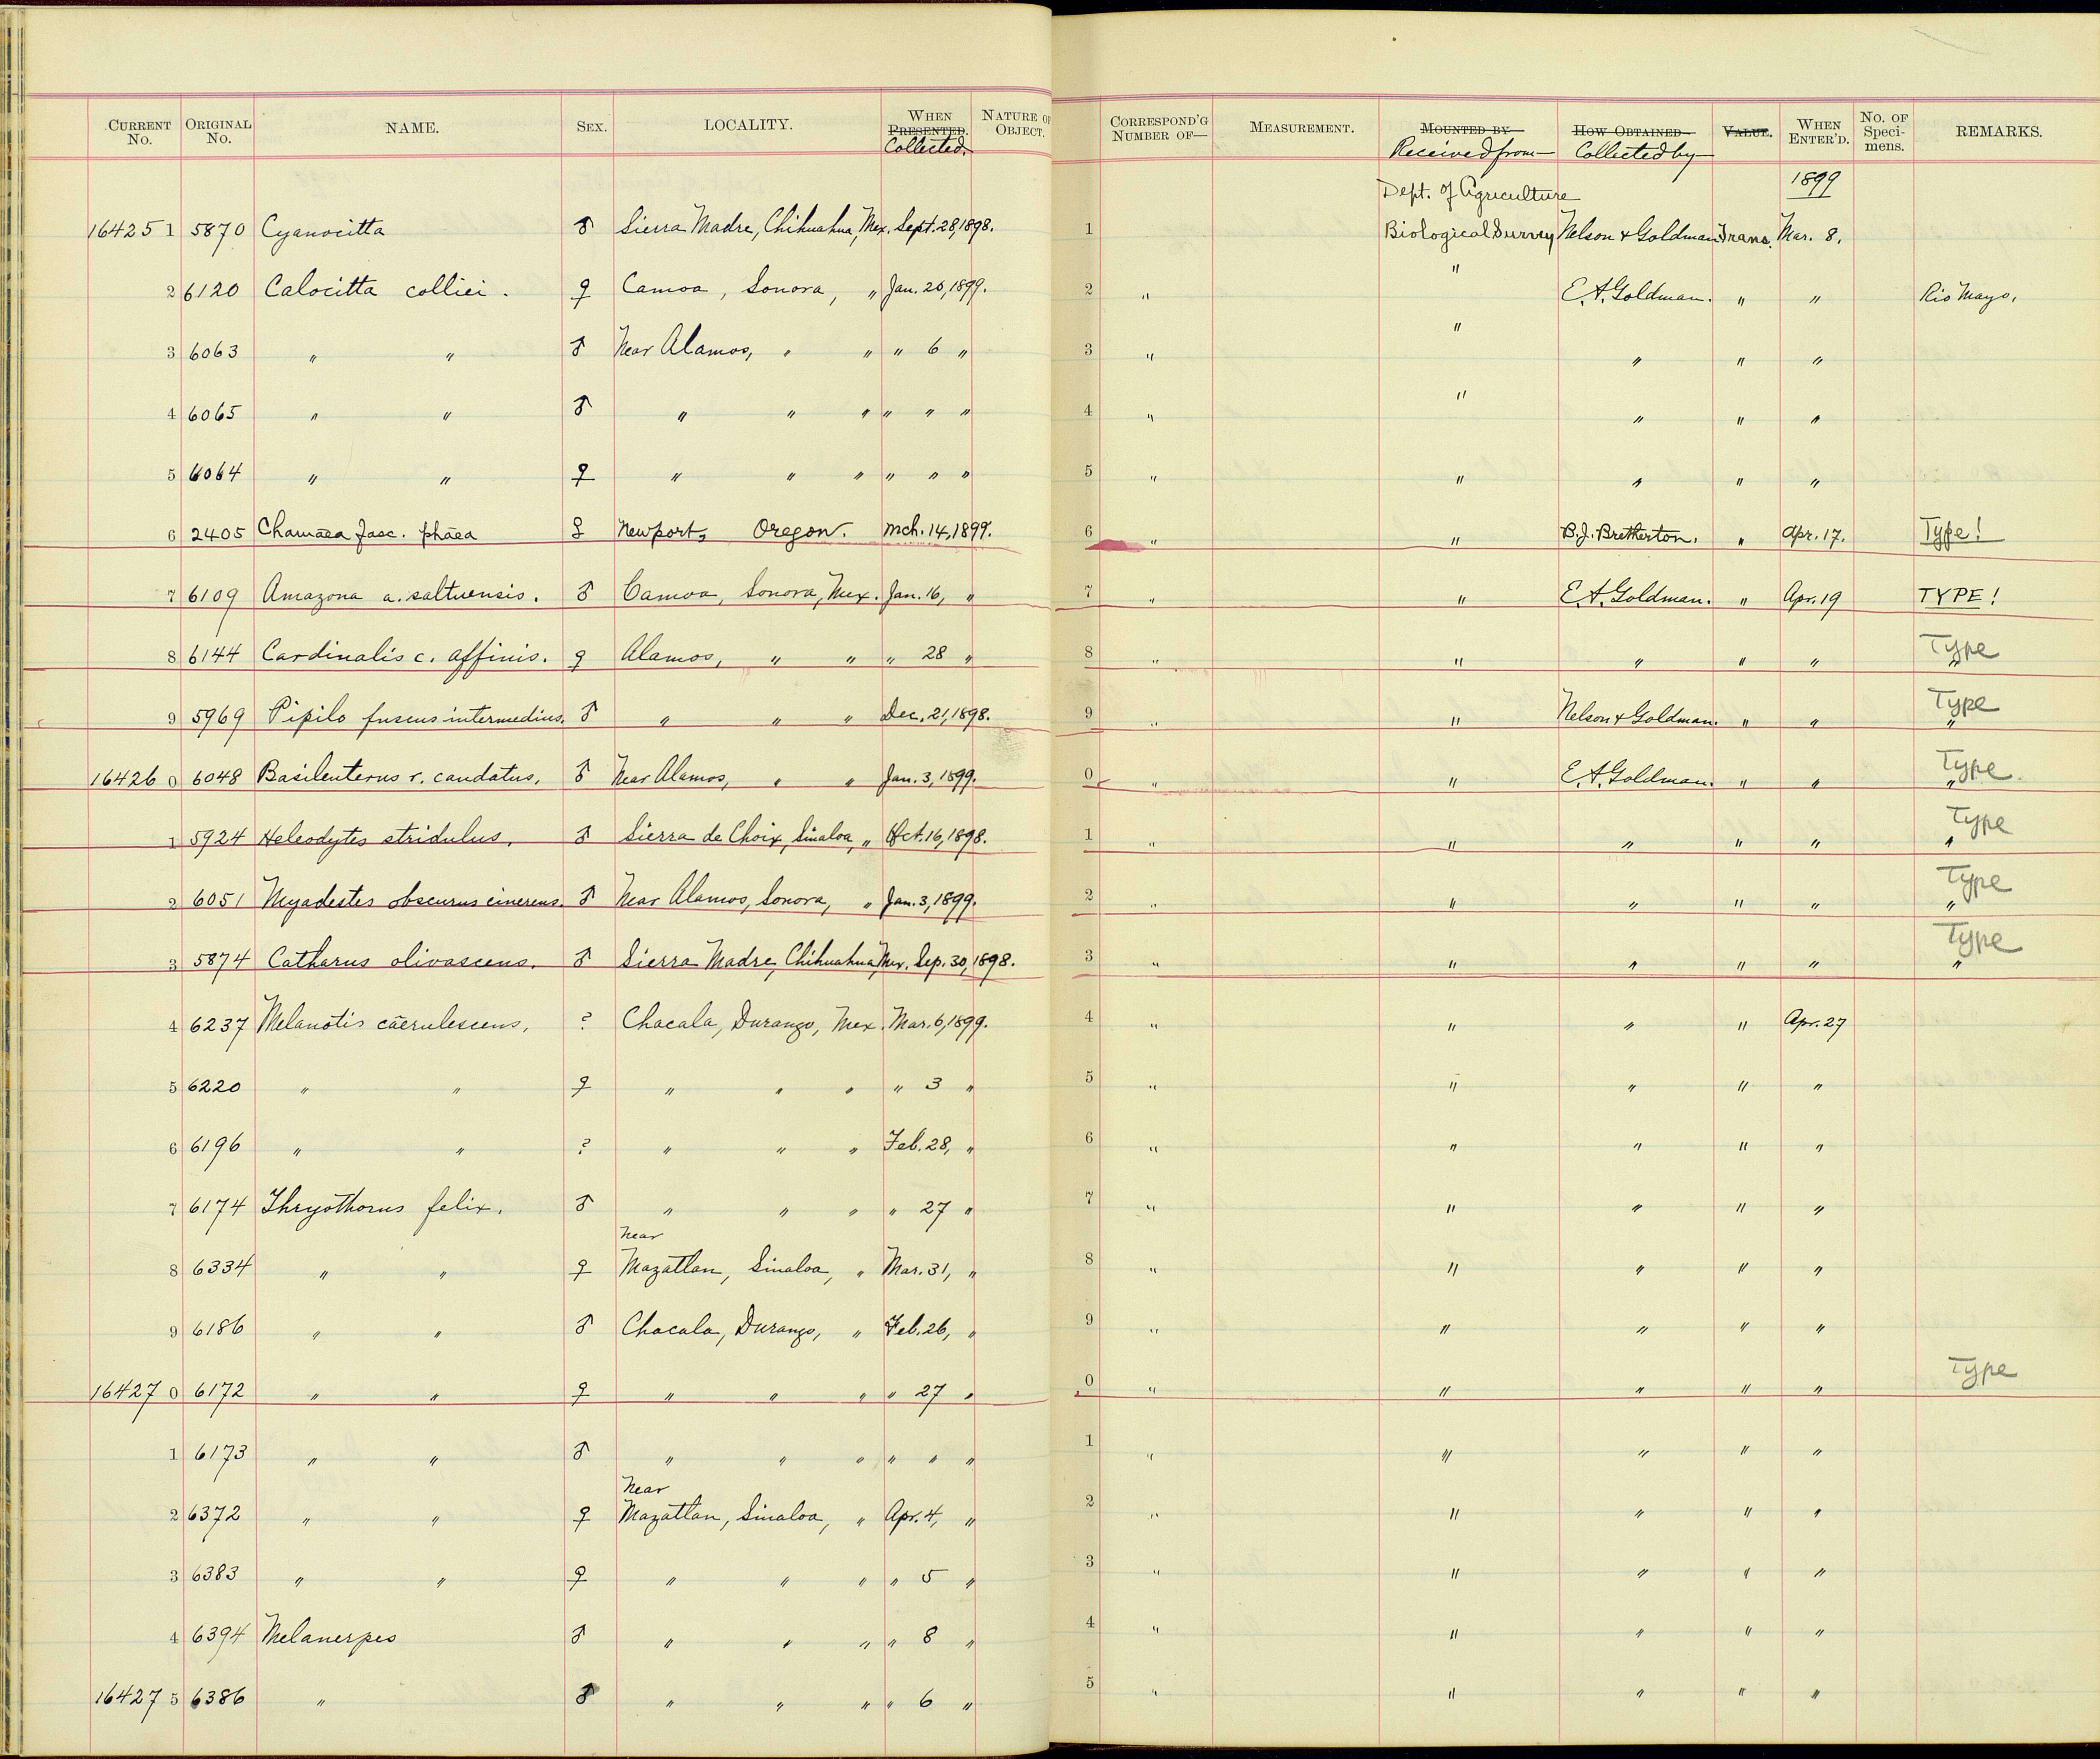 CURRENT No. ORIGINAL No. NAME. SEX. LOCALITY. WHEN PRESENTED. Collected. NATURE OF OBJECT. CORRESPOND'G NUMBER OF— MEASUREMENT. MOUNTED BY— Received from— HOW OBTAINED— Collected by— VALUE. WHEN ENTER'D. No. OF Speci-mens. REMARKS.
Dept. of Agriculture 1899
16425 1 5870 Cyanocitta ♂ Sierra Madre, Chihuahua, Mex. Sept. 28, 1898. 1 Biological Survey Nelson & Goldman Trans. Mar. 8.
2 6120 Calocitta colliei. ♀ Camoa, Sonora, " Jan. 20, 1899. 2 " " E.A. Goldman. " " Rio Mayo,
3 6063 " " ♂ Near Alamos, " " " 6 " 3 " " " " "
4 6065 " " ♂ " " " " " " 4 " " " " "
5 6064 " " ♀ " " " " " " 5 " " " " "
6 2405 Chamæa fasc. phæa ♀ Newport, Oregon. Mch. 14, 1899. 6 " " B.J. Bretherton. " Apr. 17. Type!
7 6109 Amazona a. saltuensis. ♂ Camoa, Sonora, Mex. Jan. 16, " 7 " " E.A. Goldman. " Apr. 19 TYPE!
8 6144 Cardinalis c. affinis. ♀ Alamos, " " " 28 " 8 " " " " " Type "
9 5969 Pipilo fuscus intermedius. ♂ " " " Dec. 21, 1898. 9 " " Nelson & Goldman. " " Type "
16426 0 6048 Basileuterus r. caudatus. ♂ Near Alamos, " " Jan. 3, 1899. 0 " " E.A. Goldman. " " Type. "
1 5924 Heleodytes stridulus. ♂ Sierra de Choix, Sinaloa, " Oct. 16, 1898. 1 " " " " " Type "
2 6051 Myadestes obscurus cinereus. ♂ Near Alamos, Sonora, " Jan. 3, 1899. 2 " " " " " Type "
3 5874 Catharus olivascens. ♂ Sierra Madre, Chihuahua, Mex. Sep. 30, 1898. 3 " " " " " Type "
4 6237 Melanotis cærulescens, ? Chacala, Durango, Mex. Mar. 6, 1899. 4 " " " " Apr. 27
5 6220 " " ♀ " " " " 3 " 5 " " " " "
6 6196 " " ? " " " Feb. 28, " 6 " " " " "
7 6174 Thryothorus felix. ♂ " " " " 27 " 7 " " " " "
8 6334 " " ♀ Near Mazatlan, Sinaloa, " Mar. 31, " 8 " " " " "
9 6186 " " ♂ Chacala, Durango, " Feb. 26, " 9 " " " " "
16427 0 6172 " " ♀ " " " " 27 " 0 " " " " " Type
1 6173 " " ♂ " " " " " " 1 " " " " "
2 6372 " " ♀ Near Mazatlan, Sinaloa, " Apr. 4, " 2 " " " " "
3 6383 " " ♀ " " " " 5 " 3 " " " " "
4 6394 Melanerpes ♂ " " " " 8 " 4 " " " " "
16427 5 6386 " ♂ " " " " 6 " 5 " " " " "